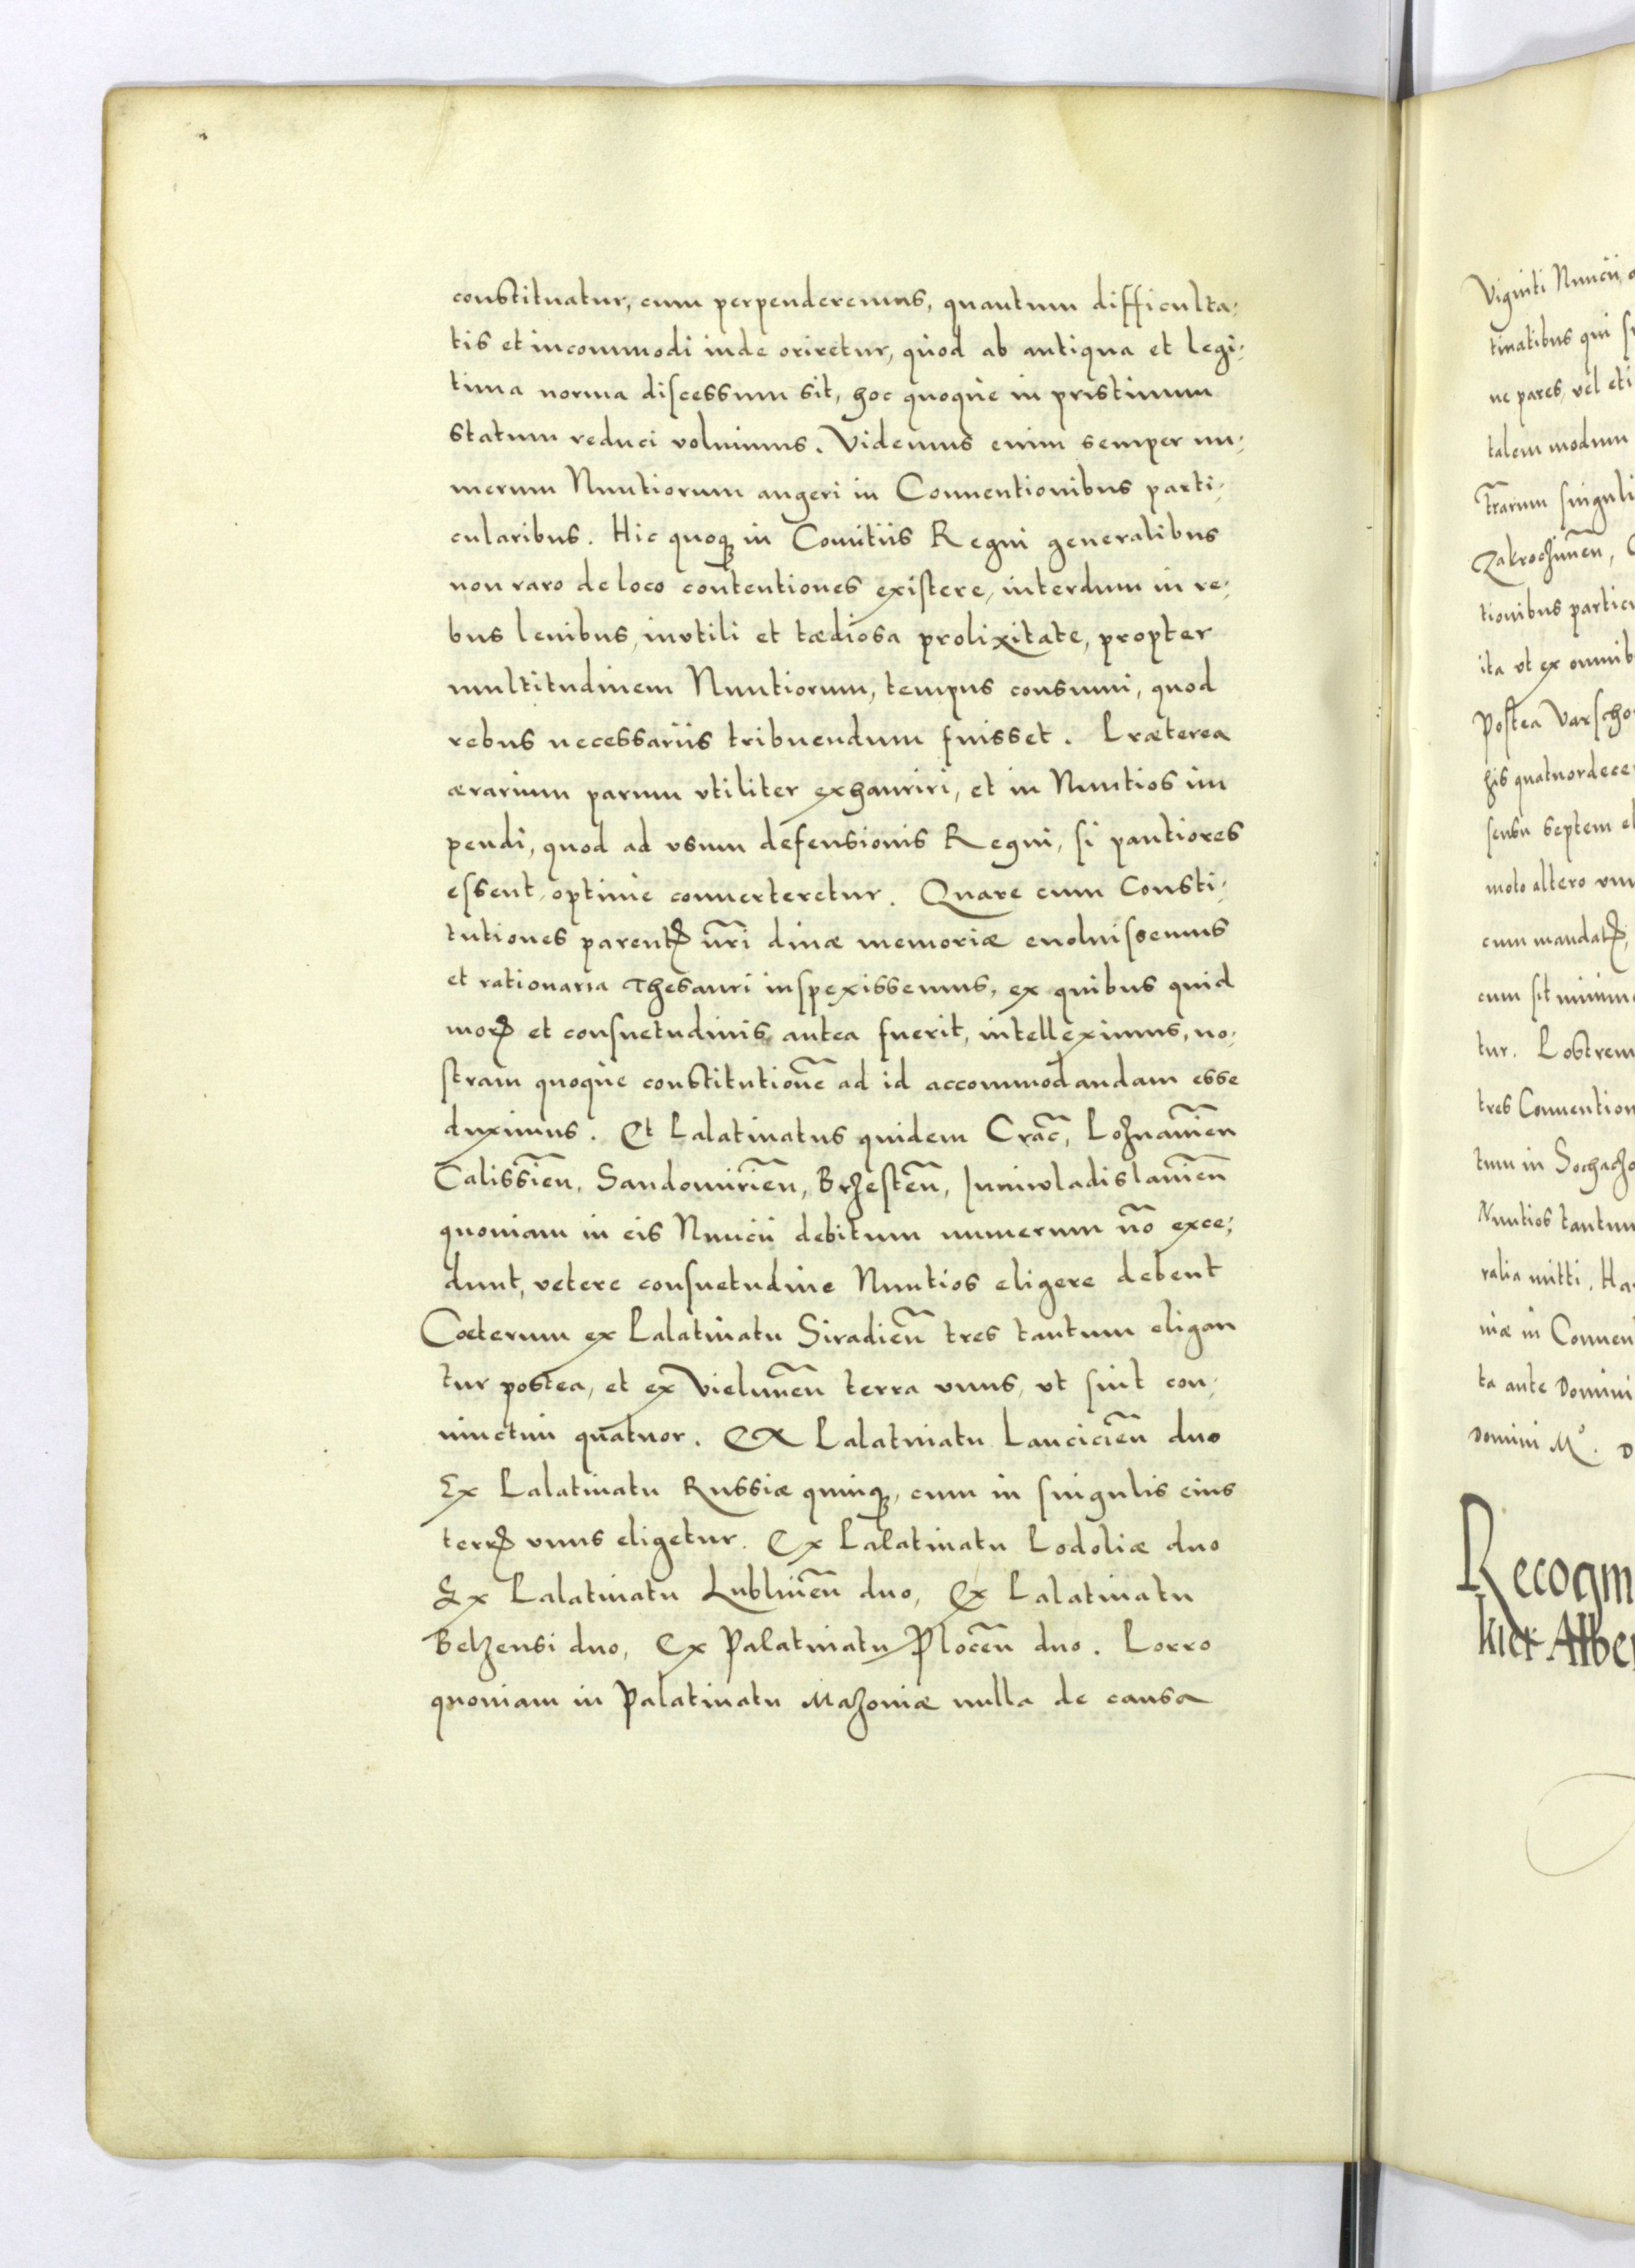 constituatur, cum perpenderemus, quantum difficulta-
tis et incommodi inde oriretur, quod ab antiqua et legi-
tima norma discessum sit, hoc quoque in pristinum
statum reduci volumus. Videmus enim semper nu-
merum Nuntiorum augeri in Conuentionibus parti-
cularibus. Hic quoq₃ in Comitiis Regni generalibus
non raro de loco contentiones existere, interdum in re-
bus leuibus, invtili et tædiosa prolixitate, propter
multitudinem Nuntiorum, tempus consumi, quod
rebus necessariis tribuendum fuisset. Præterea
ærarium parum vtiliter exhauriri, et in Nuntios im
pendi, quod ad vsum defensionis Regni, si pautiores
essent, optime conuerteretur. Quare cum Consti-
tutiones parentꝭ nr̃i diuæ memoriæ euoluissemus
et rationaria Thesauri inspexissemus, ex quibus quid
morꝭ et consuetudinis antea fuerit, intelleximus, no-
stram quoque constitutionẽ ad id accommodandam esse
duximus. Et Palatinatus quidem Crac̃, Poznanień
Calissień, Sandomirień, Brzesteń, Iuniwladislauień
quoniam in eis Nuncii debitum numerum nõ exce-
dunt, vetere consuetudine Nuntios eligere debent
Cœterum ex Palatinatu Siradień tres tantum eligan
tur postea, et ex Vieluneń terra vnus, vt sint con-
iunctim quatuor. EX Palatinatu Lancicień duo
Ex Palatinatu Russiæ quinq₃, cum in singulis eius
terrꝭ vnus eligetur. Ex Palatinatu Podoliæ duo
Ex Palatinatu Lublineń duo, Ex Palatinatu
Belzensi duo, Ex Palatinatu Ploceń duo. Porro
quoniam in Palatinatu Mazoniæ nulla de causa
Viginti Nuncii,
tinatibus qui
ne pares, vel eti
talem modum
tr̃arum singuli
Zakroczimeń,
tionibus particu
ita vt ex omnib
Postea Varscho
his quatuordece
sensu septem el
moto altero vnu
cum mandatꝭ,
cum sit minimo
tur. Postrem
tres Conuention
tum in Sochaczo
Nuntios tantum
ralia mitti. Ha
niæ in Conuen
ta ante Domini
Domini Mᵒ. D
Recogni
kier Alber